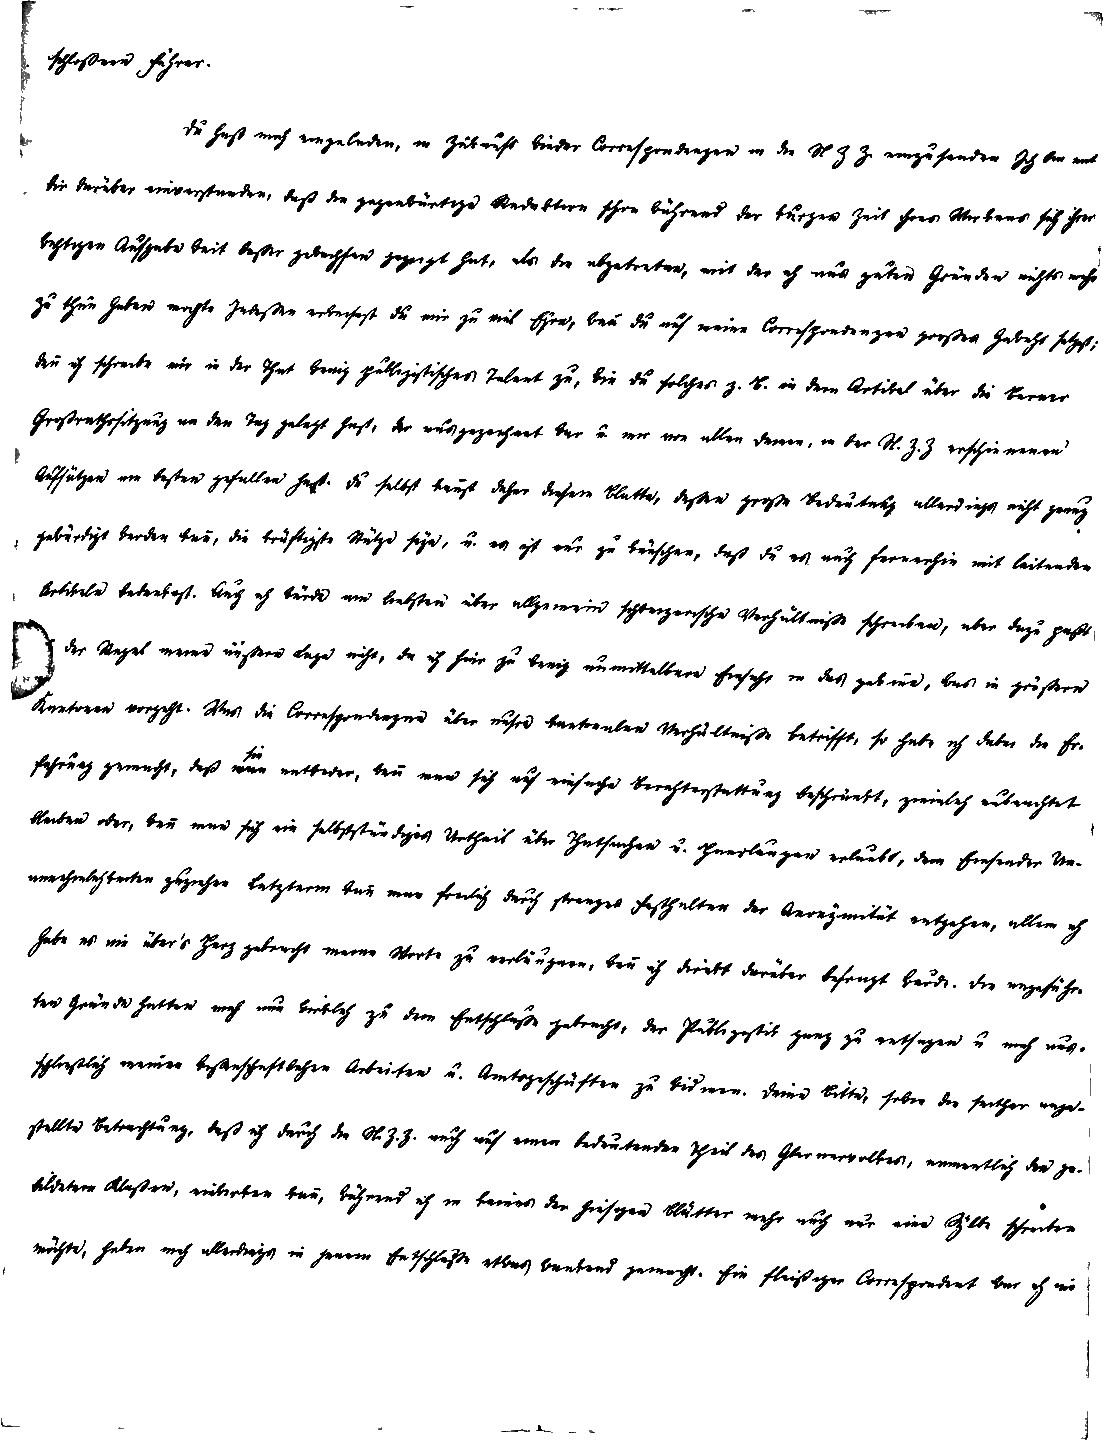 schloßenen Führer.
Du hast mich eingeladen, in Zukunft wieder Correspondenzen in die N Z Z. einzusenden Ich bin mit
dir darüber einverstanden, daß die gegenwärtige Redaktion schon während der kurzen Zeit ihres Wirkens sich ihrer
wichtigen Aufgabe weit besser gewachsen gezeigt hat, als die abgetretene, mit der ich aus guten Gründen nichts mehr
zu thun haben mochte Indessen erweisest du mir zu viel Ehre, wenn du auf meine Correspondenzen großes Gewicht setzest;
denn ich schreibe mir in der That wenig publizistisches Talent zu, wie du solches z. B. in dem Artikel über die Berner
Großrathssitzung an den Tag gelegt hast, der ausgezeichnet war u mir von allen denen, in der N. Z. Z erschienenen
Aufsätzen am besten gefallen hat. Du selbst kannst daher diesem Blatte, dessen große Bedeutung allerdings nicht genug
gewürdigt werden kann, die kräftigste Stütze sein, u. es ist nur zu wünschen, daß du es auch fernerhin mit leitenden
Artikeln bedenkest. Auch ich würde am liebsten über allgemein schweizerische Verhältnisse schreiben, aber dazu paßt
in der Regel meine äußere Lage nicht, da ich hier zu wenig unmittelbare Einsicht in das gewinne, was in größern
Kantonen vorgeht. Was die Correspondenzen über unsre kantonalen Verhältnisse betrifft, so habe ich dabei die Er-
fahrung gemacht, daß sie entweder, wenn man sich auf einfache Berichterstattung beschränkt, ziemlich unbeachtet
bleiben oder, wenn man sich ein selbstständiges Urtheil über Thatsachen u. Personen erlaubt, dem Einsender Un-
annehmlichkeiten zuziehen Letzterm kann man freilich durch strenges Festhalten der Anonymität entgehen, allein ich
habe es nie über's Herz gebracht meine Worte zu verläugnen, wenn ich direkt darüber befragt wurde. Die angeführ-
ten Gründe hatten mich nun wirklich zu dem Entschlusse gebracht, der Publizistik ganz zu entsagen u mich aus-
schließlich meinen wissenschaftlichen Arbeiten u. Amtsgeschäften zu widmen. Deine Bitte, sowie die seither ange-
stellte Betrachtung, daß ich durch die N. Z. Z. auch auf einen bedeutenden Theil des Glarnervolkes, namentlich die ge-
bildetern Klassen, einwirken kann, während ich in keines der hiesigen Blätter mehr auch nur eine Sylbe schreiben
möchte, haben mich allerdings in jenem Entschlusse etwas wankend gemacht. Ein fleißiger Correspondent war ich nie